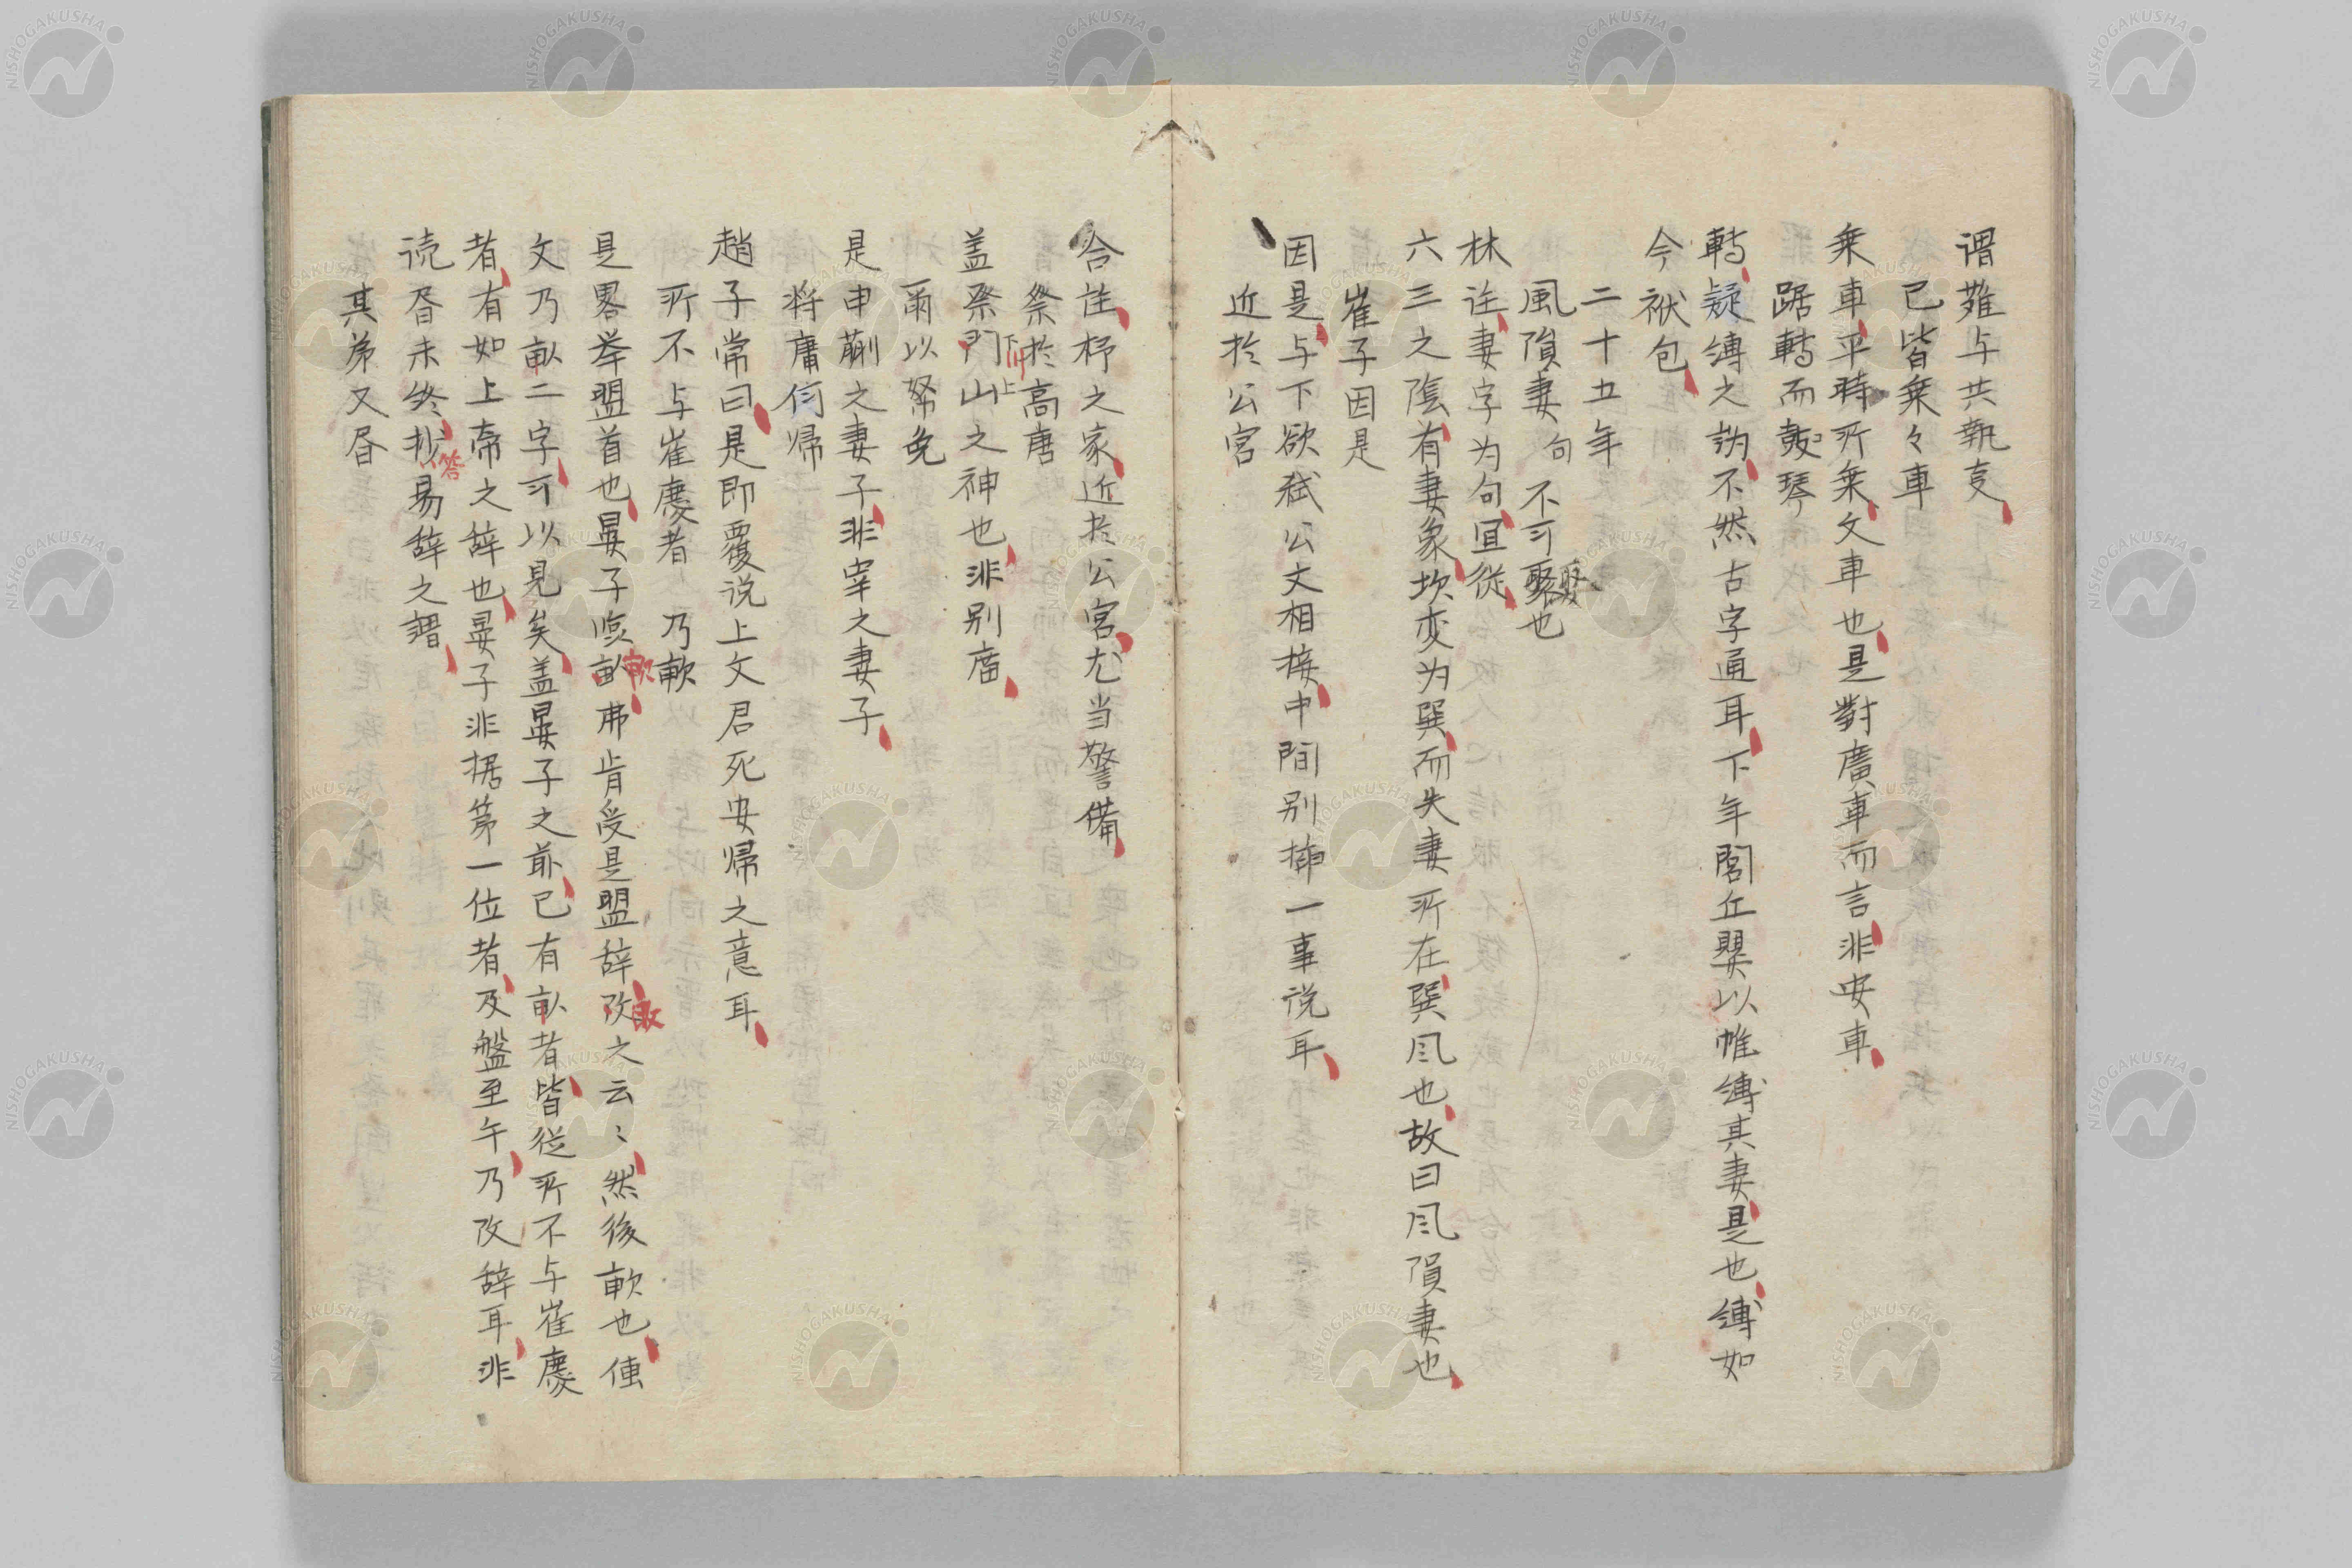 謂蕹与共執支
已皆乗々車
乗車平時所乗文車也是對廣車而言非安車
踞轉而鼓琴
轉疑縳之訛不然古字通耳下年閭丘嬰以帷縳其妻是也縳如
今袱包
二十五年
風隕妻句不可娶也
林注妻字为句宜從
六三之陰有妻象坎变为巽而失妻所在巽风也故曰风隕妻也
崔子因是
因是与下欲弑公文相接中間別挿一事说耳
近於公宮
合注杼之家近於公宮尤当警備
祭於高唐
盖祭門山之神也非別庿
爾以帑免
是申蒯之妻子非宰之妻子
将庸何帰
趙子常曰是即覆说上文君死安帰之意耳
所不与崔慶者 乃歃
是畧举盟首也晏子嘆歃弗肯受是盟辞改之云々然後歃也伝
文乃歃二字可以見矣盖晏子之前已有歃者皆従所不与崔慶
者有如上帝之辞也晏子非据第一位者及盤至午乃改辞耳非
读昏未终抄答易辞之謂
其弟又昏
NISHOGAKUSHA